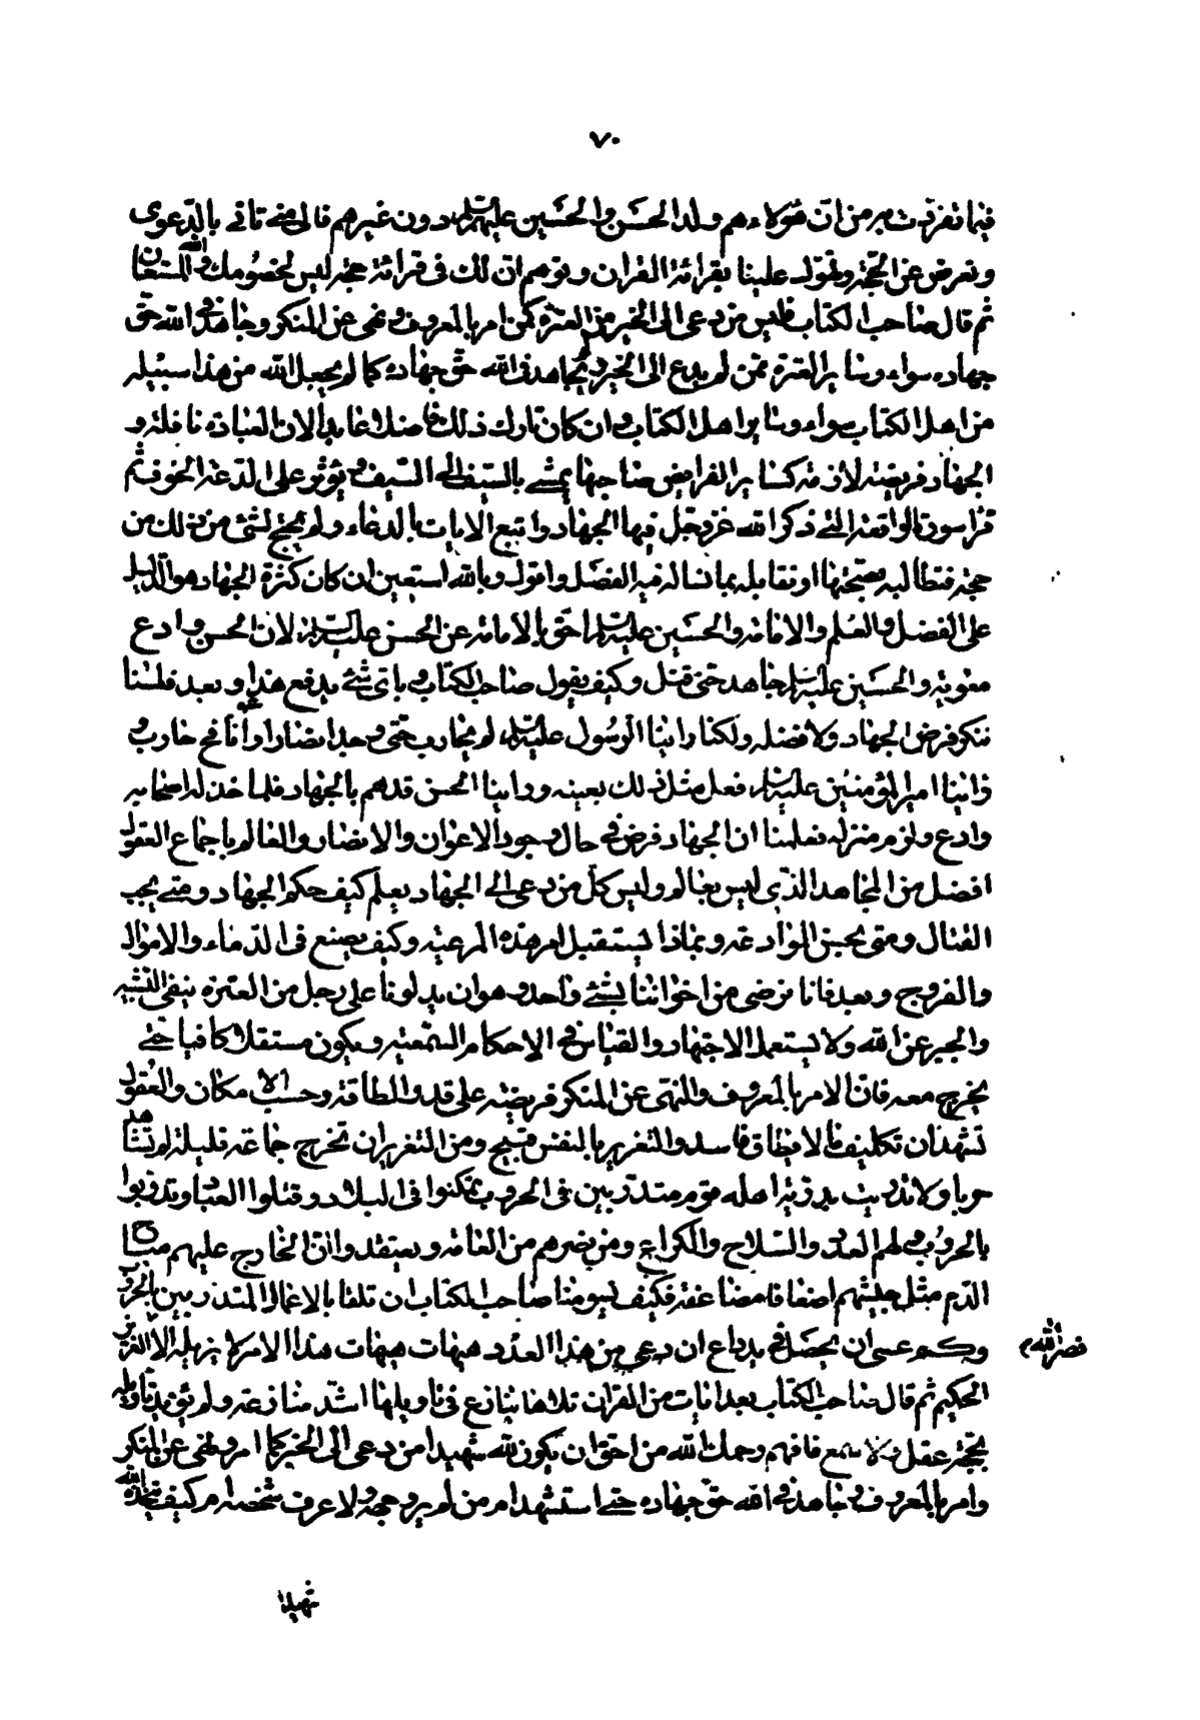 ٧٠
فيما تفردت به من ان هؤلاء هم ولد الحسن والحسين عليهم السلم دون غيرهم فالى متى تاتى بالدعوى
وتعرض عن الحجة وتهول علينا بقرائة القران وتوهم ان لك فى قرائة حجة ليس لخصومك والله المستعان
ثم قال صاحب الكتاب فليس من دعى الى الخير من العترة كمن امر بالمعروف ونهى عن المنكر وجاهد فى الله حق
جهاده سواء وساير العترة ممن لم يدع الى الخير ولم يجاهد فى الله حق جهاده كما لم يجعل الله من هذا سبيله
من اهل الكتاب سواء وساير اهل الكتاب وان كان تارك ذلك فاضلا عابدا لان العبادة نافلة و
الجهاد فريضة لازمة كساير الفرايض صاحبها يمشى بالسيف الى السيف ويؤثر على الدعة الخوف ثم
قرا سورة الواقعة التى ذكر الله عز وجل فيها الجهاد واتبع الايات بالدعاء ولم يحتج لشئ من ذلك من
حجة فنطالبه بصحتها او نقابله بما نساله فيه الفصل واقول وبالله استعين ان كان كثرة الجهاد هو الدليل
على الفضل والعلم والامامة فالحسين عليه السلم احق بالامامة عن الحسن عليه السلم لان الحسن وادع
معوية والحسين عليه السلم جاهد حتى قتل وكيف يقول صاحب الكتاب وباى شئ يدفع هذا وبعد فلسنا
ننكر فرض الجهاد ولا فضله ولكنا راينا الرسول عليه السلم لم يحارب حتى وجد انصارا واعوانا فح حارب و
راينا امير المؤمنين عليه السلم فعل مثل ذلك بعينه وراينا الحسن قد هم بالجهاد فلما خذله اصحابه
وادع ولزم منزله فعلمنا ان الجهاد فرض فى حال وجود الاعوان والانصار والعالم باجماع العقول
افضل من المجاهد الذى ليس بعالم وليس كل من دعى الى الجهاد يعلم كيف حكم الجهاد ومتى يجب
القتال ومتى يحسن الموادعة وبماذا يستقبل امر هذه الرعية وكيف يصنع فى الدماء والاموال
والفروج وبعد فانا نرضى من اخواننا بشئ واحد وهو ان يدلونا على رجل من العترة ينفى التشبيه
والجبر عن الله ولا يستعمل الاجتهاد والقياس فى الاحكام السمعية ويكون مستقلا كافيا حتى
يخرج معه فان الامر بالمعروف والنهى عن المنكر فريضة على قدر الطاقة وحسب الامكان والعقول
تشهد ان تكليف ما لا يطاق فاسد والتغرير بالنفس قبيح ومن التغرير ان تخرج جماعة قليلة لم تشاهد
حربا ولا تدربت بدربة اهله قوم متدربين فى الحروب تمكنوا فى البلاد وقتلوا العباد وتدربوا
بالحروب ولهم العدد والسلاح والكراع ومن نصرهم من العامة ويعتقدوا ان الخارج عليهم مباح
الدم مثل جيشهم اضعافا مضاعفة فكيف يسومنا صاحب الكتاب ان تلقا بالاغمار المتدربين بالحروب
وكم عسى ان يحصل فى يد داع ان دعى من هذا العدد هيهات هيهات هذا الامر لا يزيله الا
نصر الله
العزيز الحكيم ثم قال صاحب الكتاب بعد ايات من القران تلاها ينازع فى تاويلها اشد منازعة ولم يؤيد تاويله
بحجة عقل ولا سمع فافهم رحمك الله من احق ان يكون لله شهيدا من دعى الى الخير كما امر ونهى عن المنكر
وامر بالمعروف وجاهد فى الله حق جهاده حتى استشهد ام من لم ير وجهه ولا عرف شخصه ام كيف يتخذه الله
شهيدا